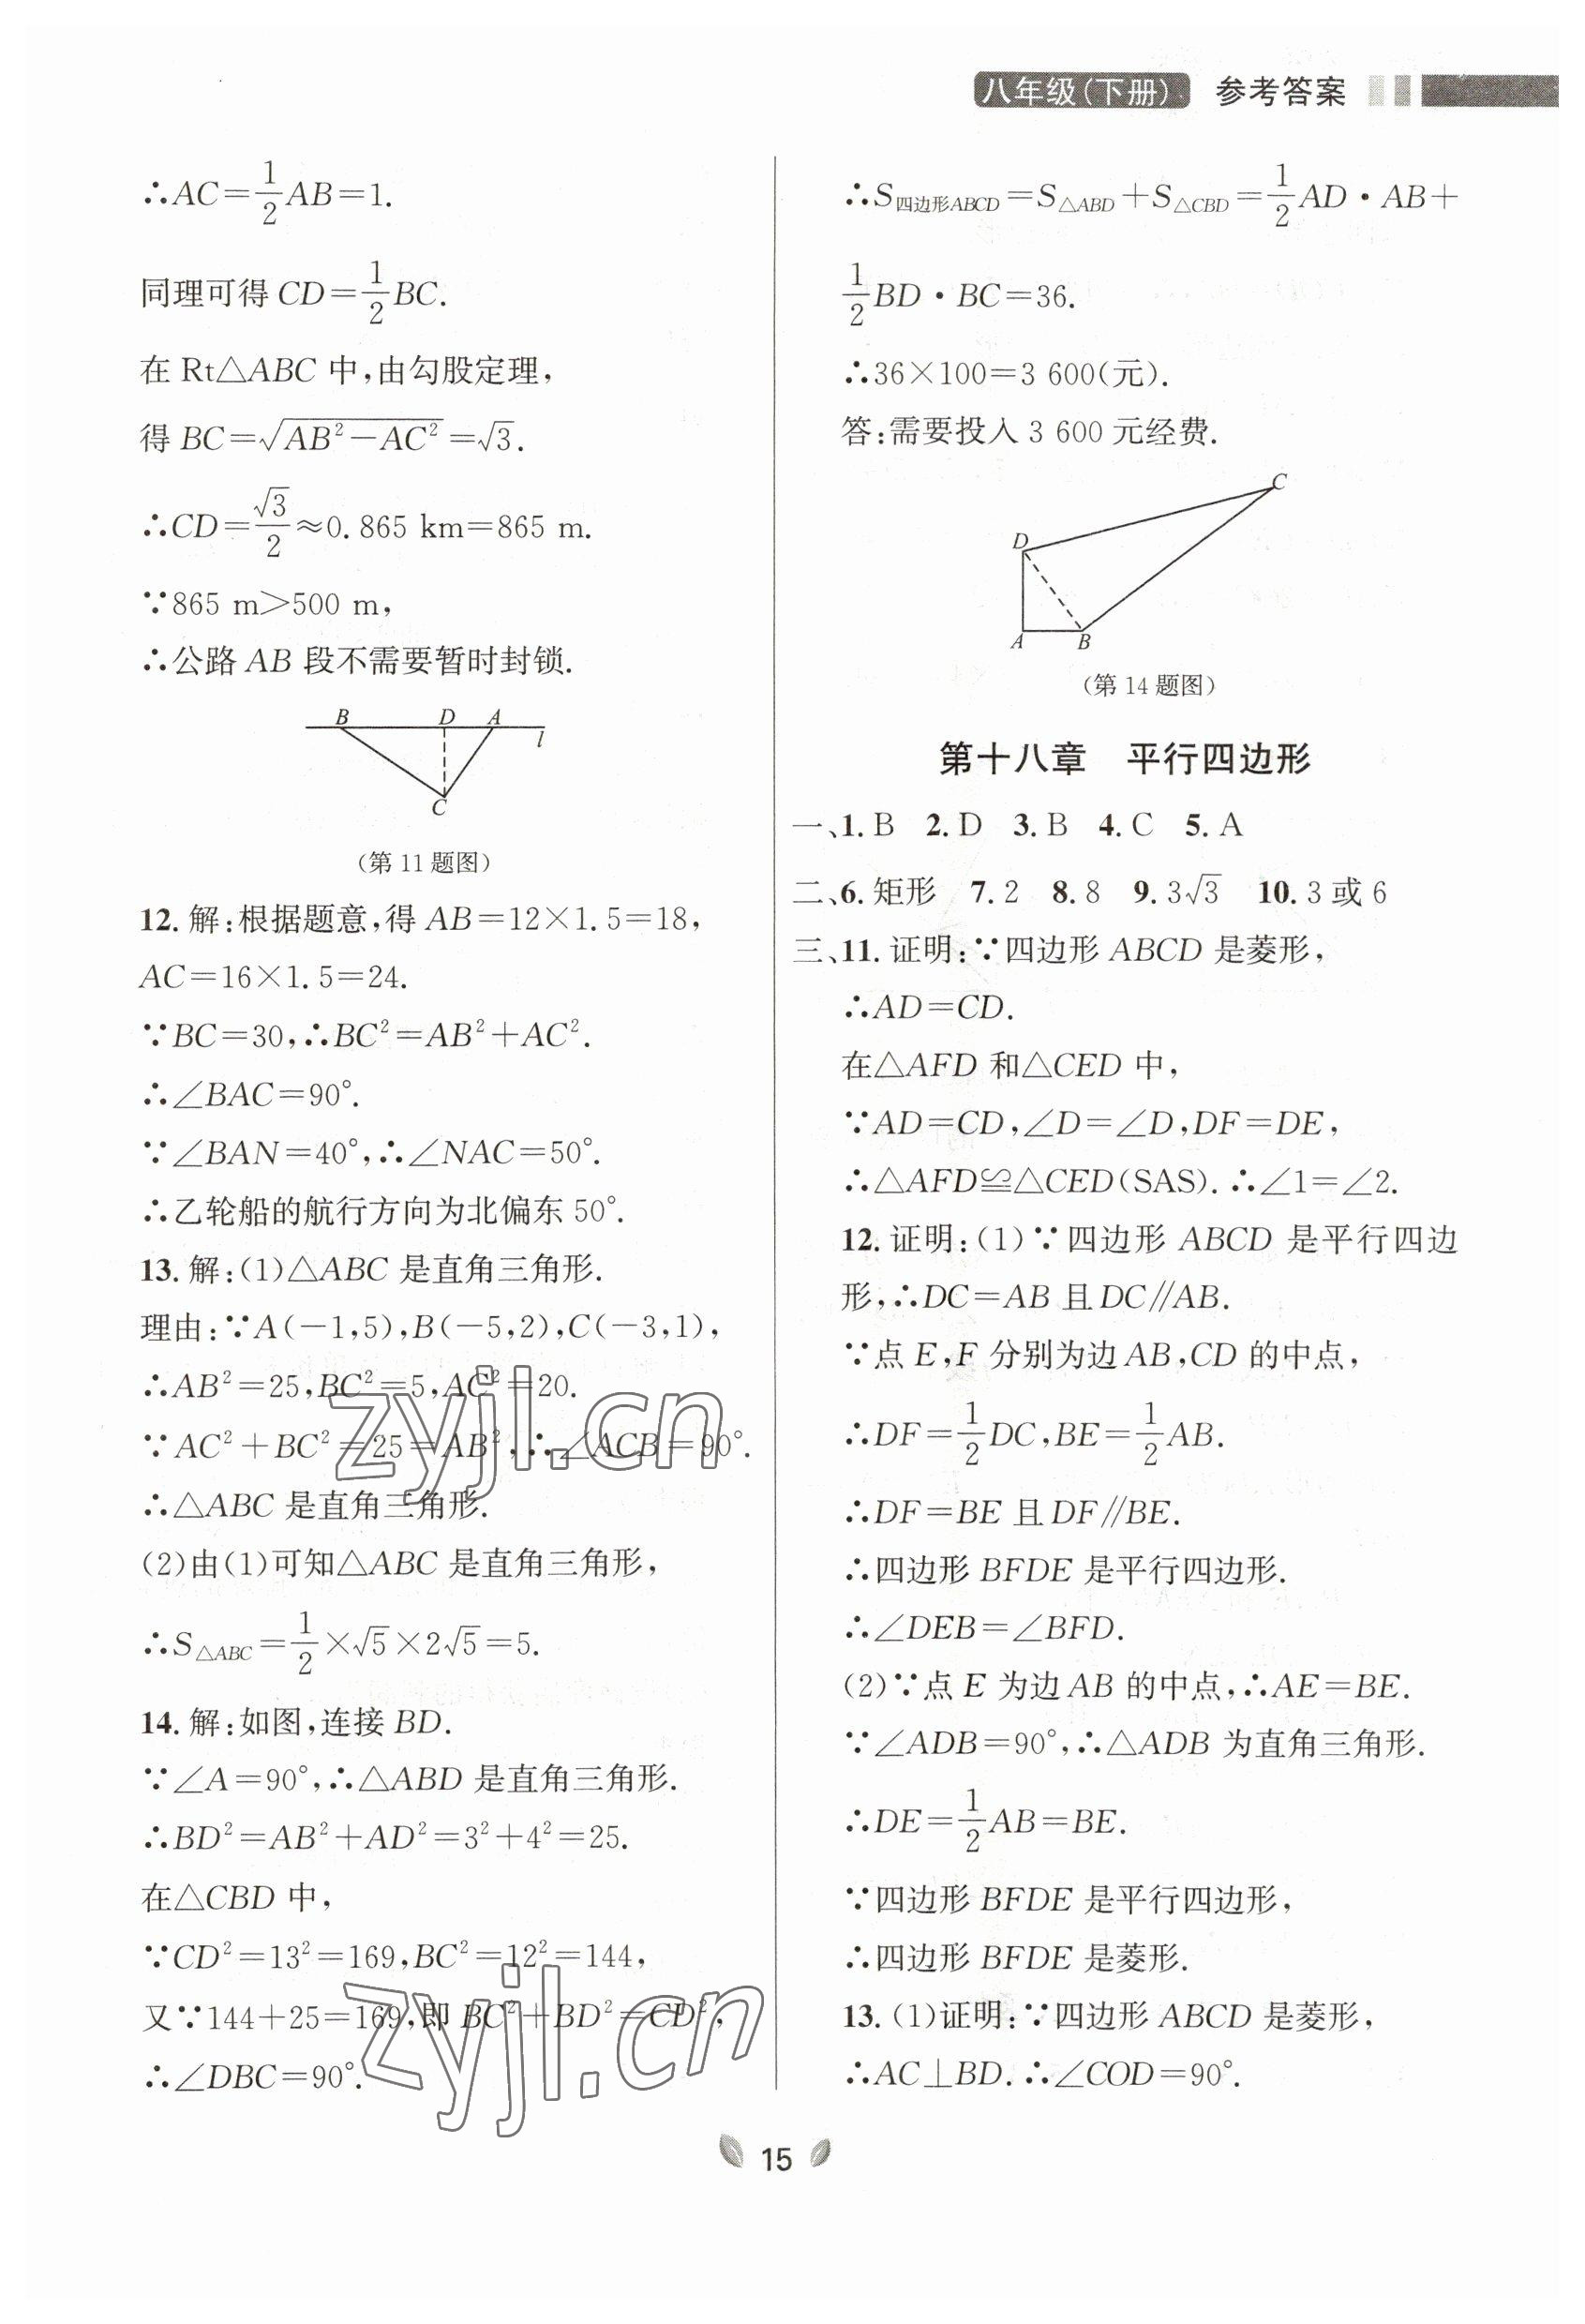 八年级(下册) 参考答案
∴AC=1/2AB=1.
同理可得 CD=1/2BC.
在 Rt△ABC 中,由勾股定理,
得 BC=√(AB²-AC²)=√3.
∴CD=√3/2≈0.865 km=865 m.
∵865 m>500 m,
∴公路 AB 段不需要暂时封锁.
B D A
l
C
(第 11 题图)
12. 解:根据题意,得 AB=12×1.5=18,
AC=16×1.5=24.
∵BC=30,∴BC²=AB²+AC².
∴∠BAC=90°.
∵∠BAN=40°,∴∠NAC=50°.
∴乙轮船的航行方向为北偏东 50°.
13. 解:(1)△ABC 是直角三角形.
理由:∵A(-1,5),B(-5,2),C(-3,1),
∴AB²=25,BC²=5,AC²=20.
∵AC²+BC²=25=AB²,∴∠ACB=90°.
∴△ABC 是直角三角形.
(2)由(1)可知△ABC 是直角三角形,
∴S△ABC=1/2×√5×2√5=5.
14. 解:如图,连接 BD.
∵∠A=90°,∴△ABD 是直角三角形.
∴BD²=AB²+AD²=3²+4²=25.
在△CBD 中,
∵CD²=13²=169,BC²=12²=144,
又∵144+25=169,即 BC²+BD²=CD²,
∴∠DBC=90°.
∴S四边形ABCD=S△ABD+S△CBD=1/2AD·AB+
1/2BD·BC=36.
∴36×100=3 600(元).
答:需要投入 3 600 元经费.
C
D
A B
(第 14 题图)
第十八章 平行四边形
一、1. B 2. D 3. B 4. C 5. A
二、6. 矩形 7. 2 8. 8 9. 3√3 10. 3 或 6
三、11. 证明:∵四边形 ABCD 是菱形,
∴AD=CD.
在△AFD 和△CED 中,
∵AD=CD,∠D=∠D,DF=DE,
∴△AFD≌△CED(SAS). ∴∠1=∠2.
12. 证明:(1)∵四边形 ABCD 是平行四边
形,∴DC=AB 且 DC∥AB.
∵点 E,F 分别为边 AB,CD 的中点,
∴DF=1/2DC,BE=1/2AB.
∴DF=BE 且 DF∥BE.
∴四边形 BFDE 是平行四边形.
∴∠DEB=∠BFD.
(2)∵点 E 为边 AB 的中点,∴AE=BE.
∵∠ADB=90°,∴△ADB 为直角三角形.
∴DE=1/2AB=BE.
∵四边形 BFDE 是平行四边形,
∴四边形 BFDE 是菱形.
13. (1)证明:∵四边形 ABCD 是菱形,
∴AC⊥BD. ∴∠COD=90°.
zyjl.cn
zyjl.cn
15